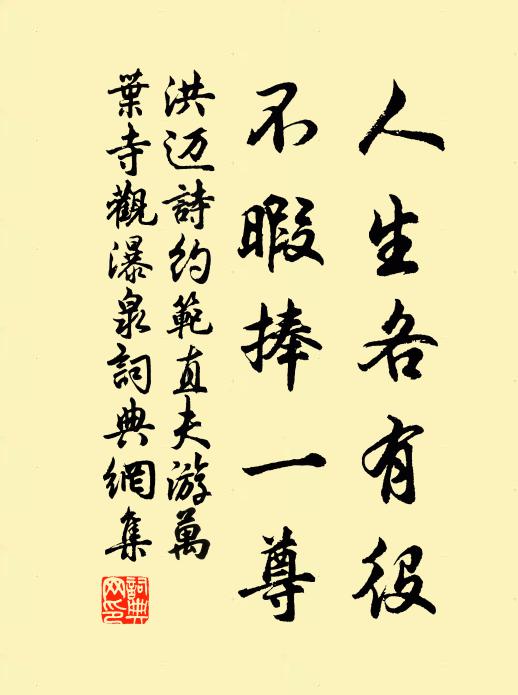 人生各有役
不暇捧一尊
洪迈詩约範直夫游萬
葉寺觀瀑泉詞典網集
詞典网印